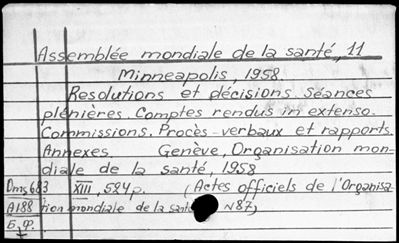 Assemblée mondiale de la santé, 11
Minneapolis, 1958.
Resolutions et décisions. Séances
plénières. Comptes rendus in extenso.
Commissions. Procès-verbaux et rapports.
Annexes. Genève, Organisation mon-
diale de la santé, 1958
Dms683 XIII, 524p. (Actes officiels de l'Organisa-
A188 tion mondiale de la santé N87)
Б.Ф.